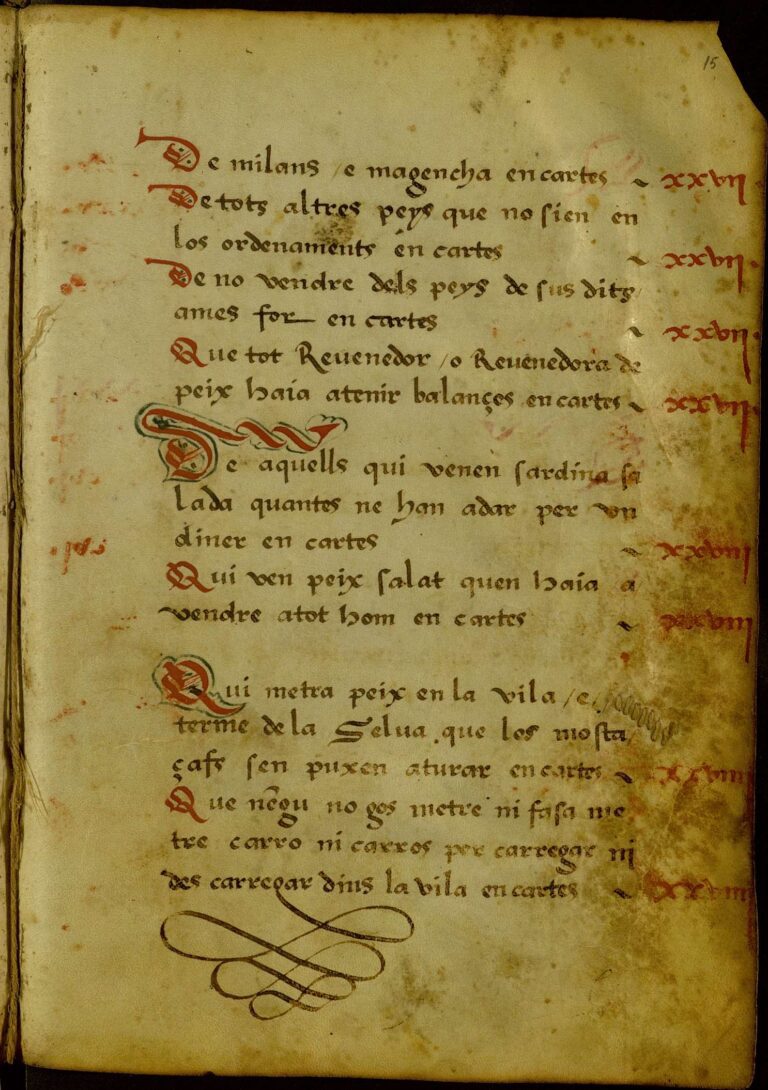 15
De milans / e magencha en cartes ~ xxvii
De tots altres peys que no sien en
los ordenaments en cartes ~ xxvii
De no vendre dels peys de sus dits
a mes for en cartes ~ xxvii
Que tot Reuenedor / o Reuenedora de
peix haia atenir balançes en cartes ~ xxvii
De aquells qui venen sardina sa
lada quantes ne han adar per vn
diner en cartes ~ xxviii
Qui ven peix salat quen haia a
vendre atot hom en cartes ~ xxviii
Qui metra peix en la vila / e
terme de la Selua que los mosta
çafs sen puxen aturar en cartes ~ xxviiii
Que nẽgu no gos metre ni fasa me
tre carro ni carros per carregar ni
des carregar dins la vila en cartes ~ xxviiii